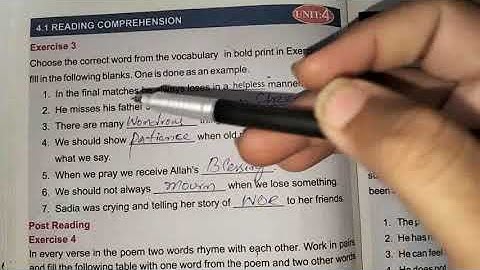 4.1 READING COMPREHENSION
UNIT:4
Exercise 3
Choose the correct word from the vocabulary in bold print in Exer
fill in the following blanks. One is done as an example.
1. In the final matches he always loses in a helpless manner
2. He misses his father
3. There are many Wondrous
4. We should show patience when old
what we say.
5. When we pray we receive Allah's Blessing
6. We should not always mourn when we lose something
7. Sadia was crying and telling her story of woe to her friends.
Post Reading
Exercise 4
In every verse in the poem two words rhyme with each other. Work in pairs
and fill the following table with one word from the poem and two other words
been
1. The p
2. He has n
3. He can feel
4. He does not